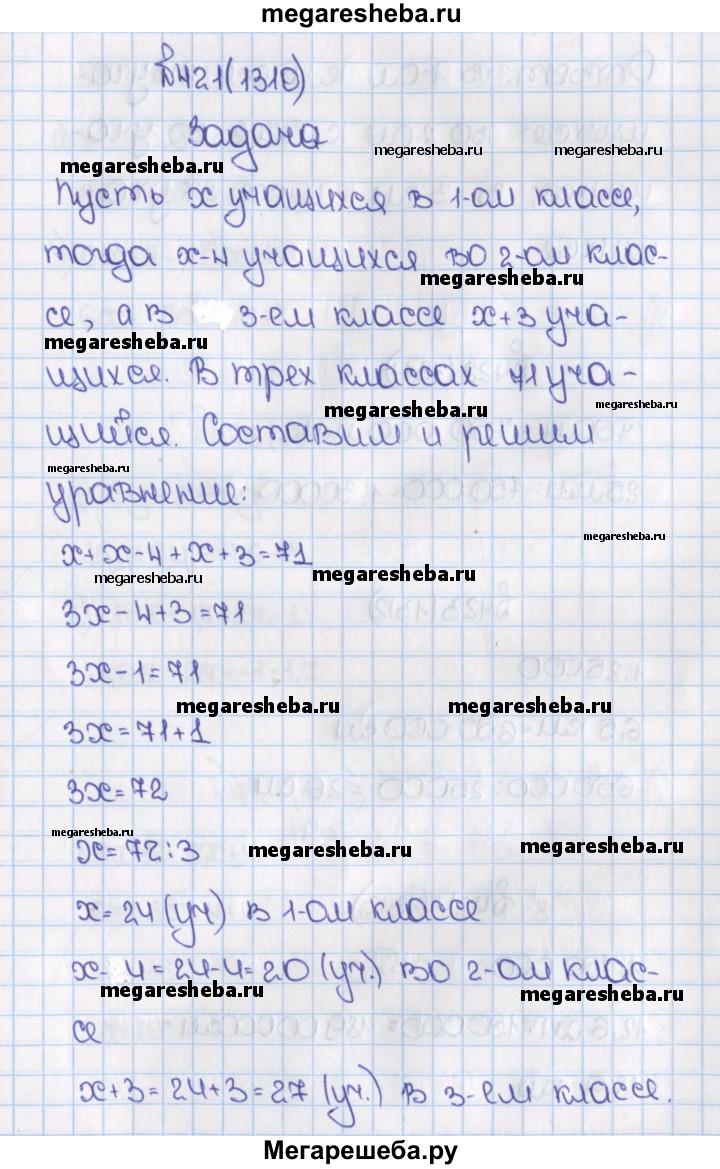 megaresheba.ru
№421(1310)
Задача
megaresheba.ru megaresheba.ru megaresheba.ru
Пусть x учащихся в 1-ом классе,
тогда x-4 учащихся во 2-ом клас-
megaresheba.ru
се, а в 3-ем классе x+3 уча-
megaresheba.ru
щихся. В трех классах 71 уча-
megaresheba.ru megaresheba.ru
щийся. Составим и решим
megaresheba.ru
уравнение:
megaresheba.ru
x+x-4+x+3=71
megaresheba.ru megaresheba.ru
3x-4+3=71
3x-1=71
megaresheba.ru megaresheba.ru
3x=71+1
3x=72
megaresheba.ru
x=72:3 megaresheba.ru megaresheba.ru
x=24 (уч) в 1-ом классе
x-4=24-4=20 (уч.) во 2-ом клас-
megaresheba.ru megaresheba.ru
се
x+3=24+3=27 (уч.) в 3-ем классе.
Мегарешеба.ру